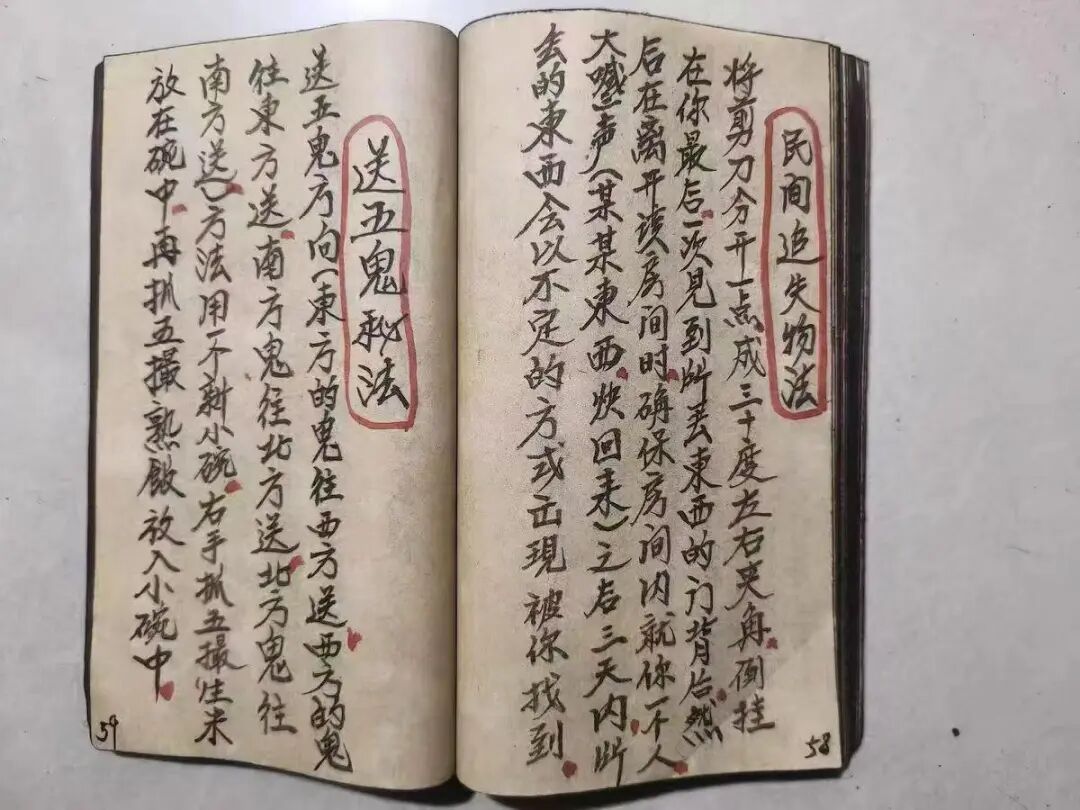 民间追失物法
将剪刀分开一点成三十度左右夹角倒挂
在你最后一次见到所丢东西的门背后然
后在离开该房间时确保房间内就你一个人
大喊一声(某某东西快回来)之后三天内所
丢的東西会以不定的方式出現被你找到
58
送五鬼秘法
送五鬼方向(東方的鬼往西方送西方的鬼
往東方送南方鬼往北方送北方鬼往
南方送)方法用一个新小碗右手抓五撮生米
放在碗中再抓五撮熟飯放入小碗中
59